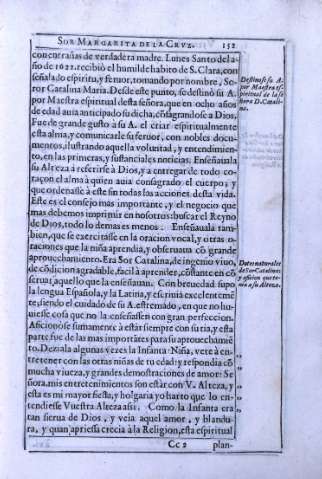 SOR MARGARITA DE LA CRVZ. 152
con entrañas de verdadera madre. Lunes Santo del a-
ño de 1622. recibió el humilde habito de S. Clara, con
señalado espiritu, y feruor, tomando por nombre, Se-
ñor Catalina Maria. Desde este punto, se destinò su A.
por Maestra espiritual desta señora, que en ocho años
de edad auia anticipado su dicha, cõsagrandose a Dios.
Fue de grande gusto à su A. el criar espiritualmente
esta alma, y comunicarle su feruor, con nobles docu-
mentos, ilustrando aquella voluntad, y entendimien-
to, en las primeras, y sustanciales noticias. Enseñauala
su Alteza à referirse à Dios, y a entregar de todo co-
raçon el alma à quien auia consagrado el cuerpo, y
que ordenasse à este fin todas las acciones desta vida.
Este es el consejo mas importante, y el negocio que
mas debemos imprimir en nosotros: buscar el Reyno
de Dios, todo lo demas es menos. Enseñauala tam-
bien, que se exercitasse en la oracion vocal, y otras o-
raciones que la niña aprendia, y obseruaua cõ grande
aprouechamiento. Era Sor Catalina, de ingenio viuo,
de cõdicion agradable, facil à aprender, cõstante en cõ
seruar, aquello que la enseñauan. Con breuedad supo
la lengua Española, y la Latina, y escriuia excelenteme
te, siendo el cuidado de su A. estremado, en que no hu-
uiesse cosa que no la enseñassen con gran perfeccion.
Aficionòse sumamente à estàr siempre con su tia, y esta
parte fue de las mas importãtes para su aprouechamiẽ
to. Deziala algunas vezes la Infanta: Niña, vete à en-
tretener con las otras niñas de tu edad: y respondia cõ
mucha viueza, y grandes demostraciones de amor: Se
ñora, mis entretenimientos son estàr con V. Alteza, y
esta es mi mayor fiesta, y holgaria yo harto que lo en-
tendiesse Vuestra Alteza assi. Como la Infanta era
tan sierua de Dios, y veia aquel amor, y blandu-
ra, y quan apriessa crecia à la Religion, esta espiritual
Cc 2 plan-
Destinose su A.
por Maestra es-
piritual de la se
ñora D. Catali-
na.
Dotes naturales
de Sor Catalina: